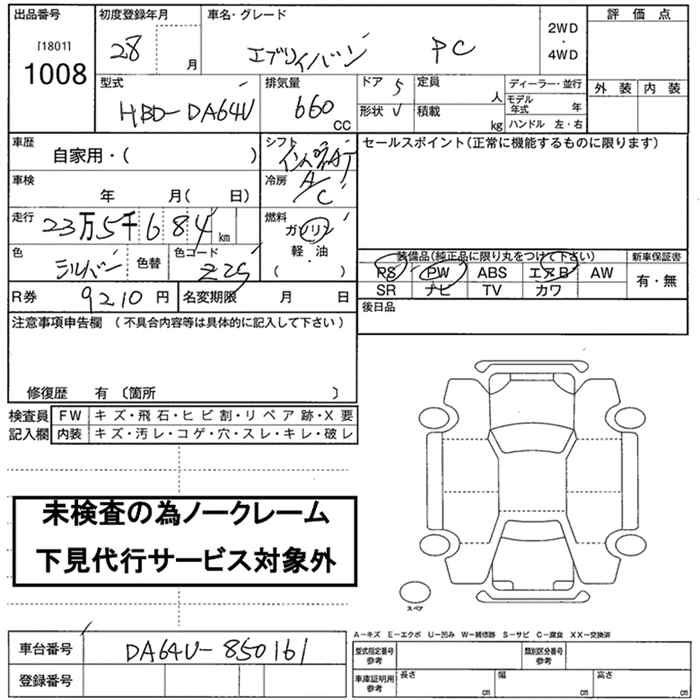 出品番号 初度登録年月 車名・グレード 2WD ・ 4WD 評価点
[1801]
1008 28 月 エブリィバン PC
型式 HBD-DA64V 排気量 660 CC ドア 5 定員 人 ディーラー・並行 外装 内装
形状 V 積載 kg モデル年式 年
ハンドル 左・右
車歴 自家用・( ) シフト インパネAT セールスポイント(正常に機能するものに限ります)
車検 年 月( 日) 冷房 A/C
走行 23万5千684 km 燃料 ガソリン
軽・油
( )
色 シルバー 色替 色コード Z2S 装備品(純正品に限り丸をつけて下さい) 新車保証書
PS PW ABS エアB AW 有・無
SR ナビ TV カワ
R券 9210 円 名変期限 月 日 後日品
注意事項申告欄 (不具合内容等は具体的に記入して下さい)
修復歴 有 〔箇所 〕
検査員 FW キズ・飛石・ヒビ割・リペア跡・X要
記入欄 内装 キズ・汚レ・コゲ・穴・スレ・キレ・破レ
未検査の為ノークレーム
下見代行サービス対象外
スペア
A-キズ E-エクボ U-凹み W-補修跡 S-サビ C-腐食 XX-交換済
車台番号 DA64V-850161 型式指定番号 参考 類別区分番号 参考
登録番号 車庫証明用 参考 長さ cm 幅 cm 高さ cm